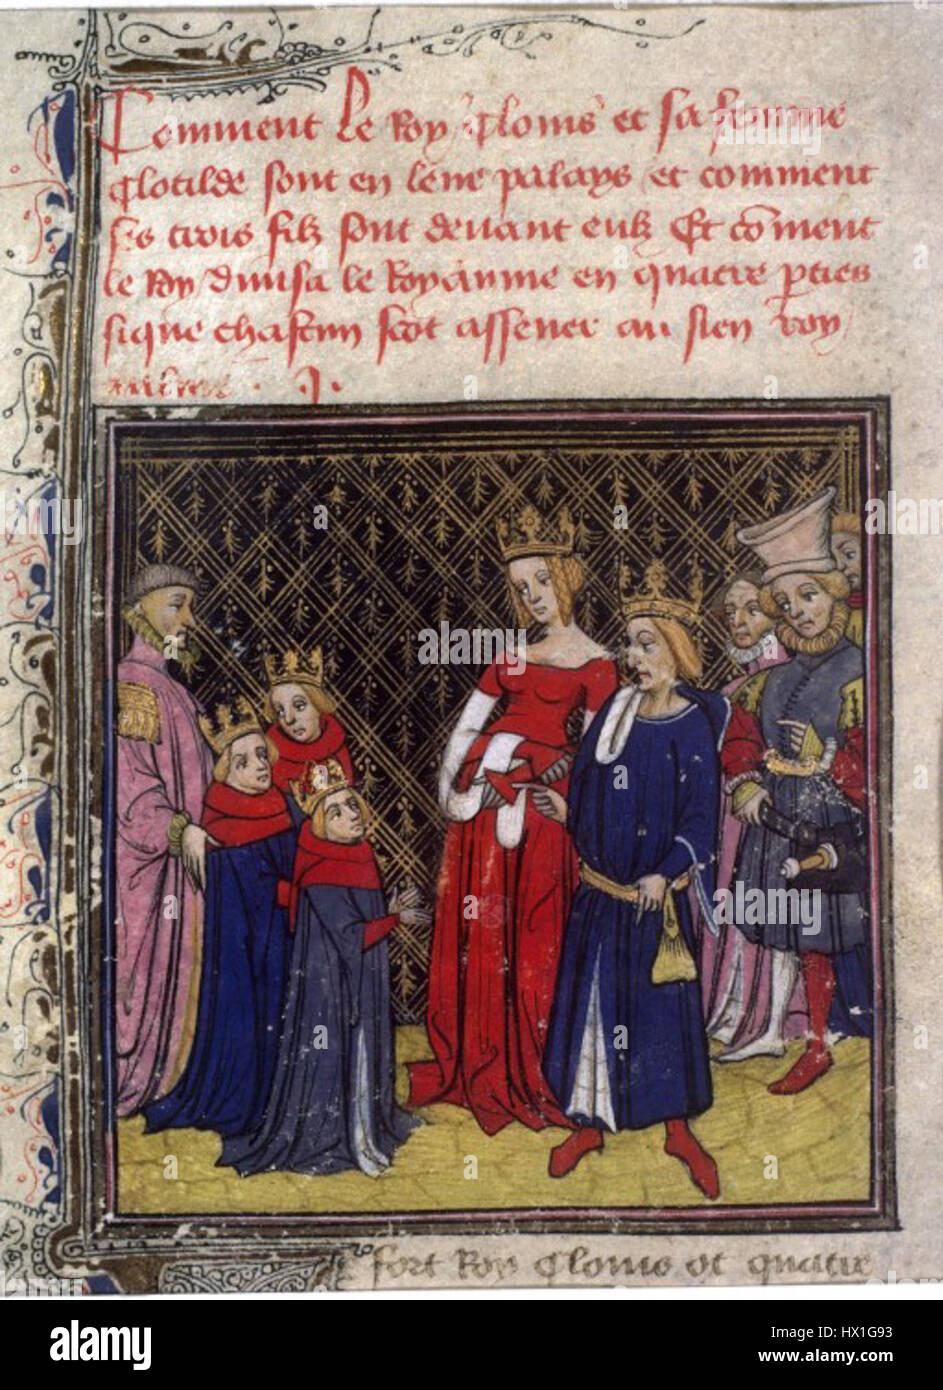 Comment le Roy Clouis et sa femme
Clotilde sont en leur palays et comment
ses trois filz sont deuant eulz Et coment
le Roy diuisa le Royaume en quatre pties
sique chascun scet assener au sien Roy
aulme . J.
fort Roy Clouis ot quatre
alamy
alamy stock photo
alamy
HX1G93
www.alamy.com